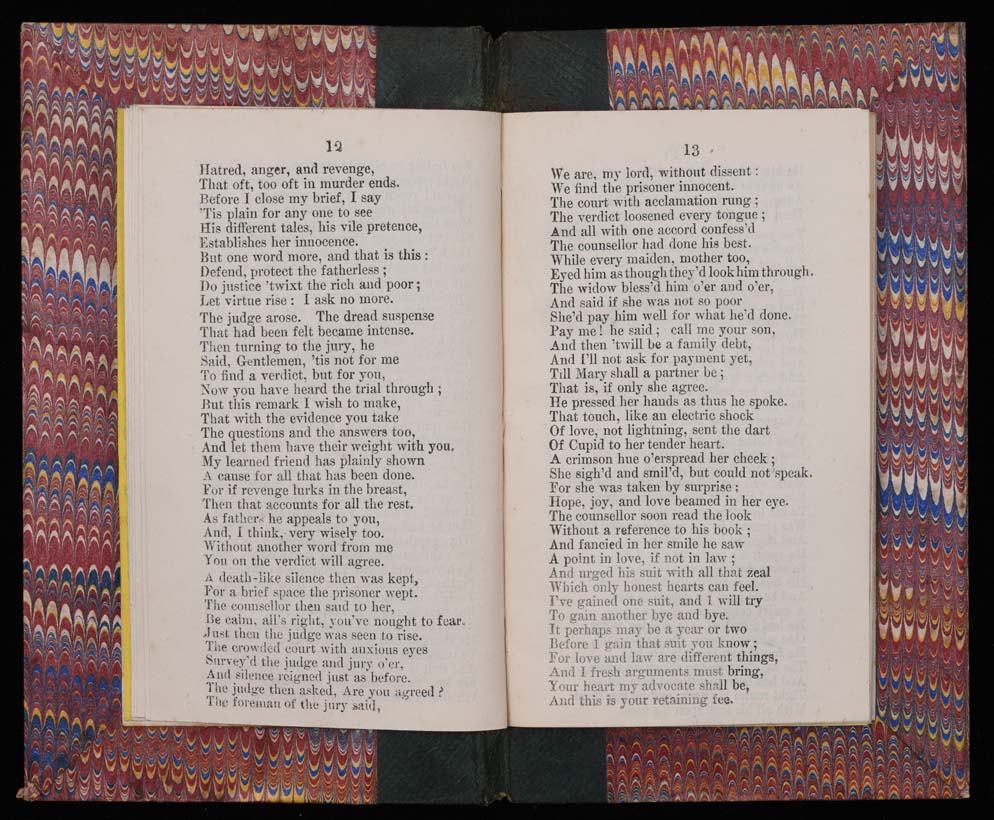 12
Hatred, anger, and revenge,
That oft, too oft in murder ends.
Before I close my brief, I say
'Tis plain for any one to see
His different tales, his vile pretence,
Establishes her innocence.
But one word more, and that is this :
Defend, protect the fatherless ;
Do justice 'twixt the rich and poor ;
Let virtue rise : I ask no more.
The judge arose. The dread suspense
That had been felt became intense.
Then turning to the jury, he
Said, Gentlemen, 'tis not for me
To find a verdict, but for you,
Now you have heard the trial through ;
But this remark I wish to make,
That with the evidence you take
The questions and the answers too,
And let them have their weight with you.
My learned friend has plainly shown
A cause for all that has been done.
For if revenge lurks in the breast,
Then that accounts for all the rest.
As fathers he appeals to you,
And, I think, very wisely too.
Without another word from me
You on the verdict will agree.
A death-like silence then was kept,
For a brief space the prisoner wept.
The counsellor then said to her,
Be calm, all's right, you've nought to fear.
Just then the judge was seen to rise.
The crowded court with anxious eyes
Survey'd the judge and jury o'er,
And silence reigned just as before.
The judge then asked, Are you agreed ?
The foreman of the jury said,
13
We are, my lord, without dissent :
We find the prisoner innocent.
The court with acclamation rung ;
The verdict loosened every tongue ;
And all with one accord confess'd
The counsellor had done his best.
While every maiden, mother too,
Eyed him as though they'd look him through.
The widow bless'd him o'er and o'er,
And said if she was not so poor
She'd pay him well for what he'd done.
Pay me ! he said ; call me your son,
And then 'twill be a family debt,
And I'll not ask for payment yet,
Till Mary shall a partner be ;
That is, if only she agree.
He pressed her hands as thus he spoke.
That touch, like an electric shock
Of love, not lightning, sent the dart
Of Cupid to her tender heart.
A crimson hue o'erspread her cheek ;
She sigh'd and smil'd, but could not speak.
For she was taken by surprise ;
Hope, joy, and love beamed in her eye.
The counsellor soon read the look
Without a reference to his book ;
And fancied in her smile he saw
A point in love, if not in law ;
And urged his suit with all that zeal
Which only honest hearts can feel.
I've gained one suit, and I will try
To gain another bye and bye.
It perhaps may be a year or two
Before I gain that suit you know ;
For love and law are different things,
And I fresh arguments must bring,
Your heart my advocate shall be,
And this is your retaining fee.